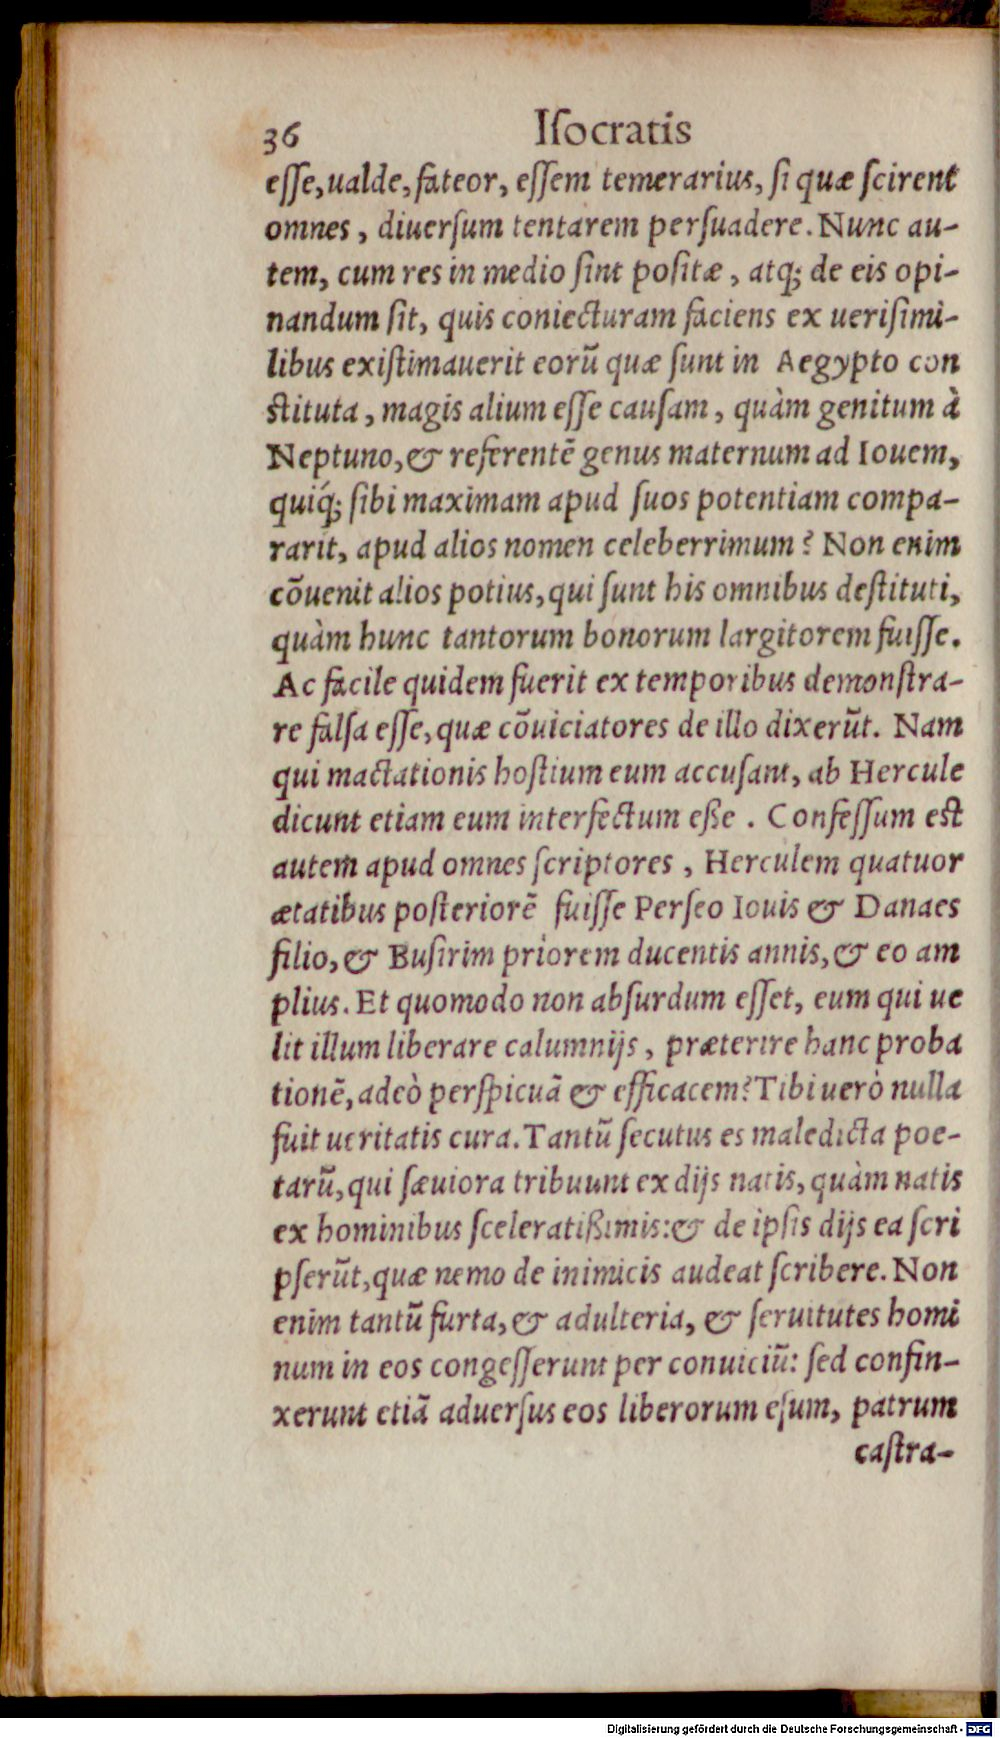 36 Iſocratis
eſſe, ualde, fateor, eſſem temerarius, ſi quæ ſcirent
omnes, diuerſum tentarem perſuadere. Nunc au-
tem, cum res in medio ſint poſitæ, atq; de eis opi-
nandum ſit, quis coniecturam faciens ex ueriſimi-
libus exiſtimauerit eorũ quæ ſunt in Aegypto con
ſtituta, magis alium eſſe cauſam, quàm genitum à
Neptuno, & referentẽ genus maternum ad Iouem,
quiq́; ſibi maximam apud ſuos potentiam compa-
rarit, apud alios nomen celeberrimum? Non enim
cõuenit alios potius, qui ſunt his omnibus deſtituti,
quàm hunc tantorum bonorum largitorem fuiſſe.
Ac facile quidem fuerit ex temporibus demonſtra-
re falſa eſſe, quæ cõuiciatores de illo dixerũt. Nam
qui mactationis hoſtium eum accuſant, ab Hercule
dicunt etiam eum interfectum eße. Confeſſum eſt
autem apud omnes ſcriptores, Herculem quatuor
ætatibus poſteriorẽ fuiſſe Perſeo Iouis & Danaes
filio, & Buſirim priorem ducentis annis, & eo am
plius. Et quomodo non abſurdum eſſet, eum qui ue
lit illum liberare calumnijs, præterire hanc proba
tionẽ, adeò perſpicuã & efficacem? Tibi uerò nulla
fuit ueritatis cura. Tantũ ſecutus es maledicta poe-
tarũ, qui ſæuiora tribuunt ex dijs natis, quàm natis
ex hominibus ſceleratißimis: & de ipſis dijs ea ſcri
pſerũt, quæ nemo de inimicis audeat ſcribere. Non
enim tantũ furta, & adulteria, & ſeruitutes homi
num in eos congeſſerunt per conuiciũ: ſed confin-
xerunt etiã aduerſus eos liberorum eſum, patrum
caſtra-
Digitalisierung gefördert durch die Deutsche Forschungsgemeinschaft - DFG